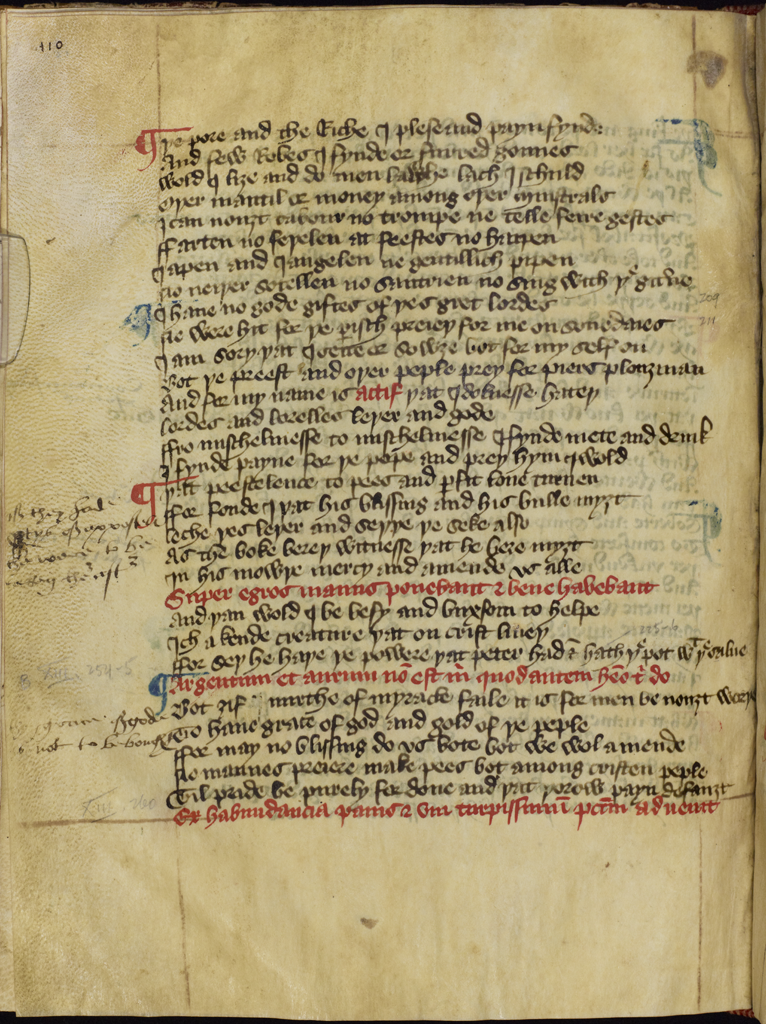 110
¶ Þe pore and the Riche I plese and payn fynde
And few Robes I fynde or furred gounes
Wold I lize and do men lawhe lach I schuld
Oþer mantil or money among oþer mynstrals
I can nouȝt tabour no trompe ne telle feire gestes
ffarten no feþelen at feestes no harpen
Iapen and Iangelen ne gentillich pipen
No neiþer sotellen no sautrien no sing with þe giterne
¶ I haue no gode giftes of þes gret lordes
209
Ne were hit for þe parisch preieþ for me on sonedaies
211
I am sory þat I sette or sowȝe bot for my self on
Bot þe preest and oþer peple prey for piers plouȝman
And for my name is actif þat Idelnesse hateþ
lordes and lorelles leþer and gode
ffro mischelmesse to mischelmesse I fynde mete and drink
I fynde payne for þe pope and prey hym I wold
¶ Þat pestelence to pees and loue turnen
ffor fonde I þat his blissing and his bulle myȝt
leche þes leþer and seyþe þe seke also
As the boke bereþ witnesse þat he bere myȝt
In his mowþe mercy and amende vs alle
Super egros manus ponebant ⁊ bene habebant
And þan wold I be besy and buxsom to helpe
Ich a kende creature þat on crist liueþ
225-6
ffor seþ he haþe þe powere þat peter had ⁊ hath þe pot wt þe salue
B XIII. 254-5
¶ Argentum et aurum no est m quod autem heo t do
Bot ȝif mirthe of myracle faile it is for men be nouȝt worþi
To haue grace of god and gold of þe peple
ffor may no blissing do vs bote bot we wol amende
Ne mannes preiere make pees bot among cristen peple
Til pride be purely for done and þat þorow payn defauȝt
XIII. 260
Ex habundancia panis ⁊ vini turpissimu pctm aduenit